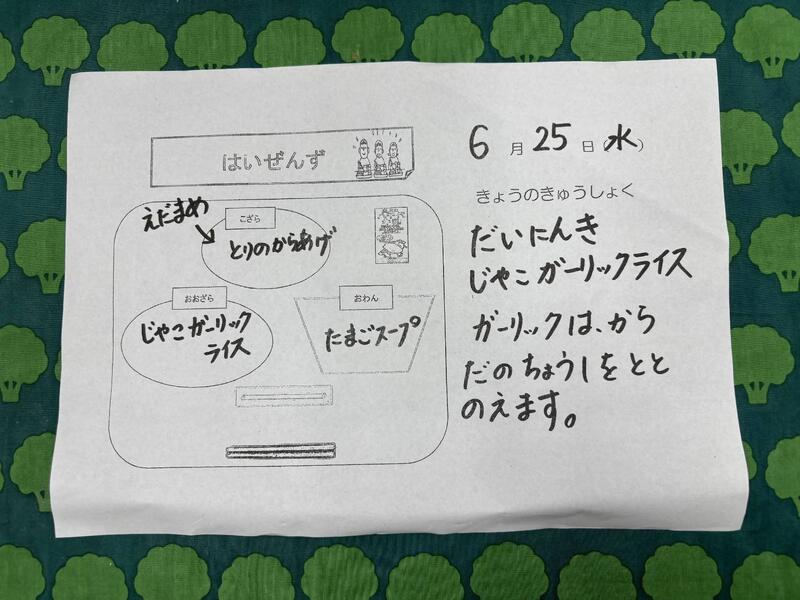 はいぜんず
えだまめ
こざら
とりのからあげ
おおざら
じゃこガーリック
ライス
おわん
たまごスープ
6月25日(水)
きょうのきゅうしょく
だいにんき
じゃこガーリックライス
ガーリックは、から
だのちょうしをとと
のえます。